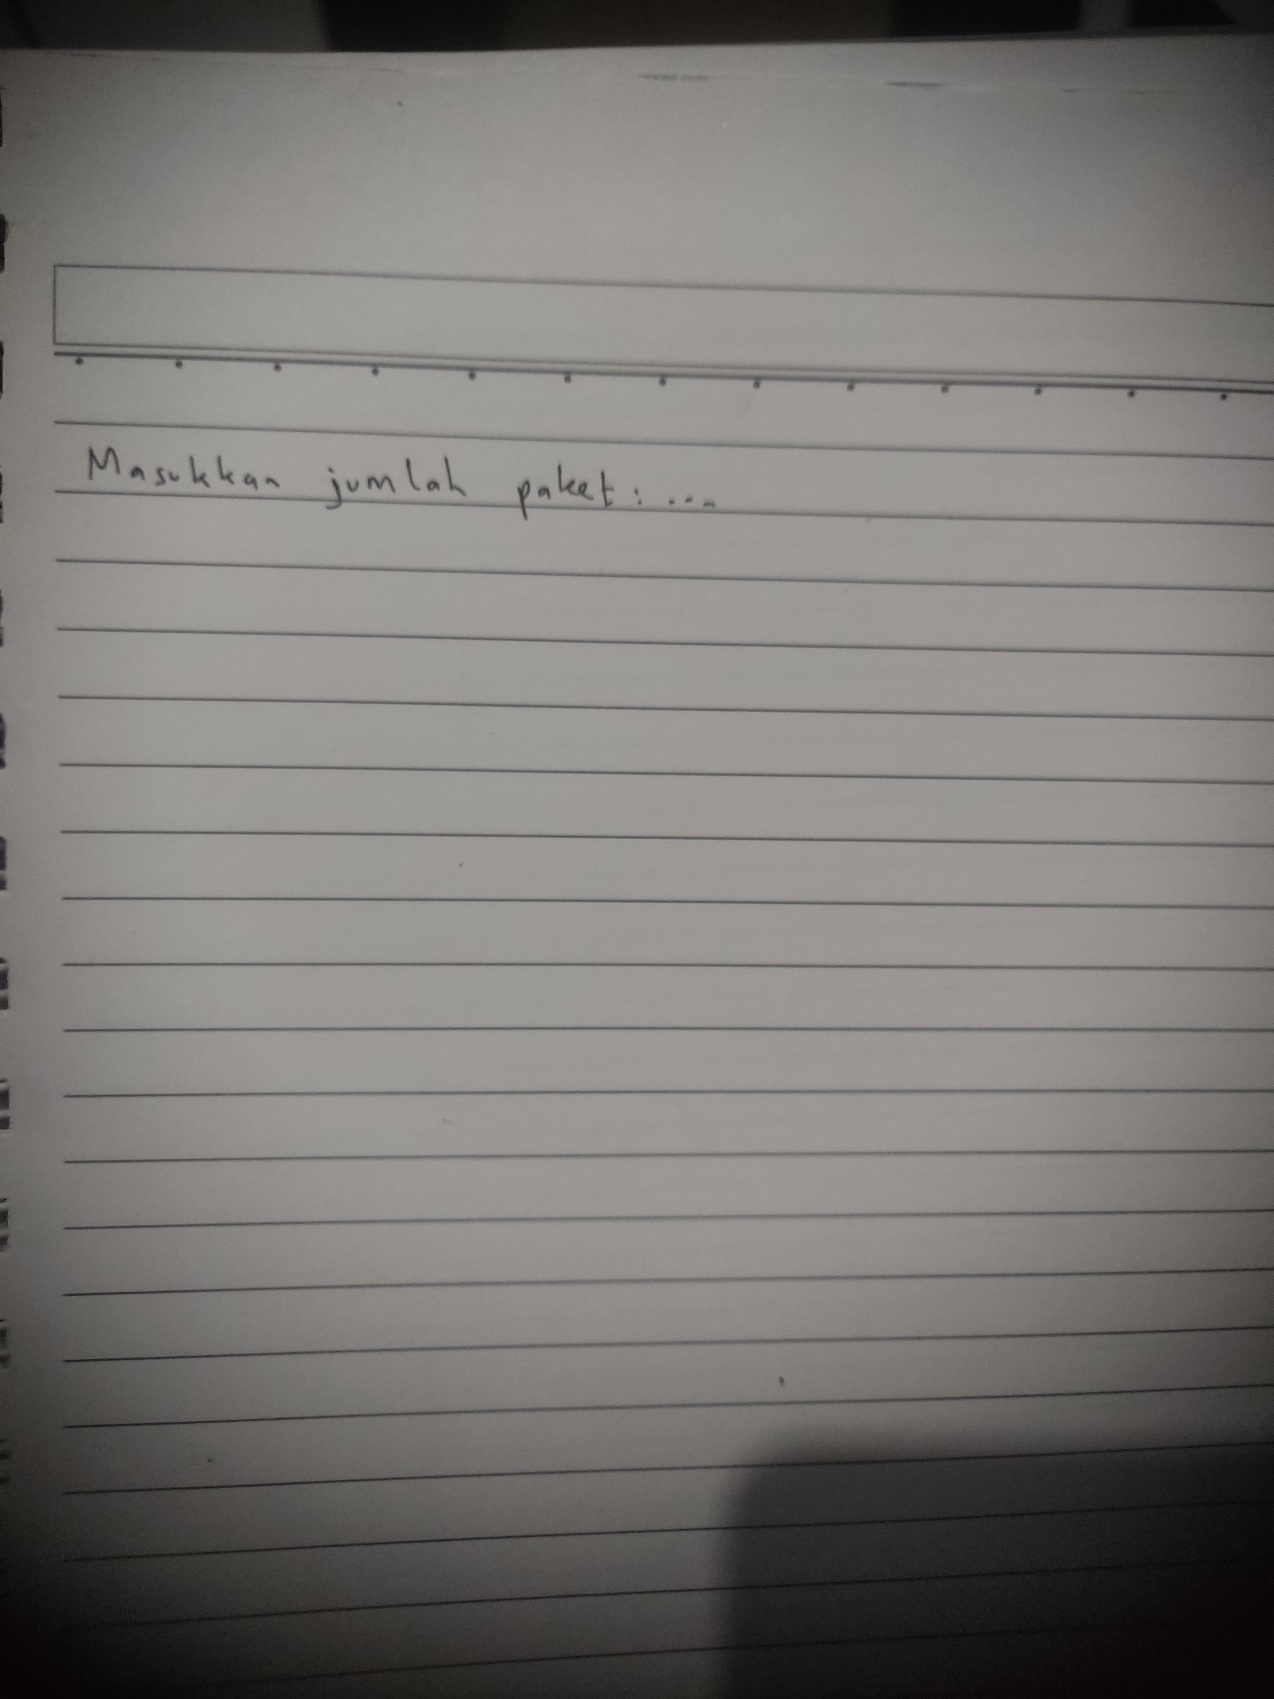 Masukkan jumlah paket : ...